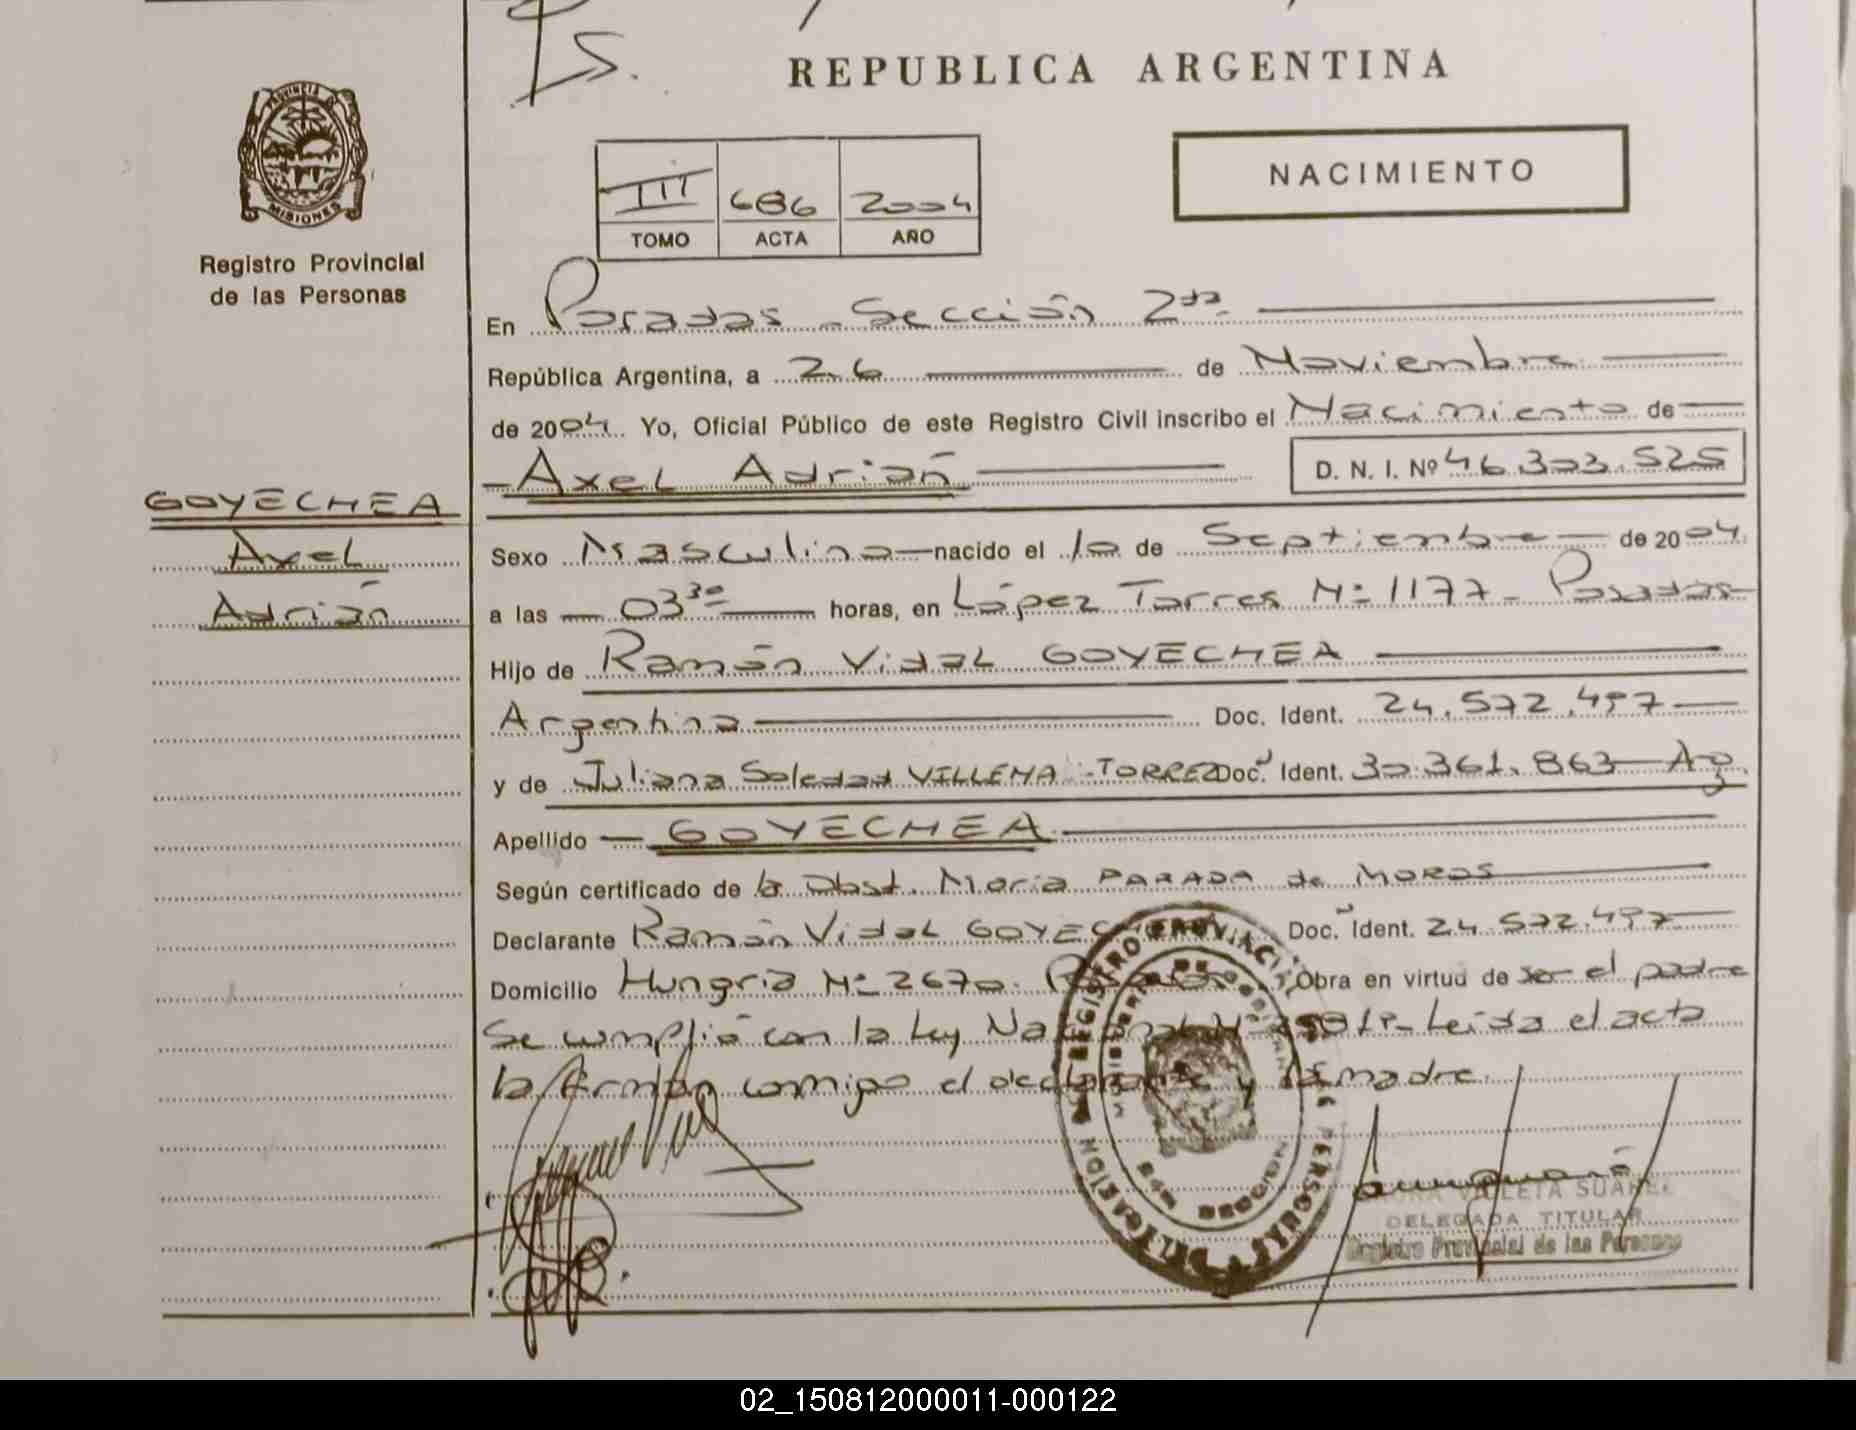 REPUBLICA ARGENTINA
PROVINCIA DE
MISIONES
Registro Provincial
de las Personas
III 686 2004
TOMO ACTA AÑO
NACIMIENTO
En Posadas - Sección 2da
República Argentina, a 26 de Noviembre
de 2004 Yo, Oficial Público de este Registro Civil inscribo el Nacimiento de
Axel Adrián D. N. I. Nº 46.303.525
GOYECHEA
Axel
Adrián
Sexo Masculino nacido el 10 de Septiembre de 2004
a las 03 30 horas, en López Torres Nº 1177 - Posadas
Hijo de Ramón Vidal GOYECHEA
Argentina Doc. Ident. 24.572.497
y de Juliana Soledad VILLEMA - TORREZ Doc. Ident. 30.361.863 Ag
Apellido GOYECHEA
Según certificado de la Obst. María PARADA de MOROS
Declarante Ramón Vidal Doc. Ident. 24.572.497
Domicilio Hungría Nº 2670. Obra en virtud de ser el padre
Se cumplió con la Ley Leída el acta
la firman conmigo el declarante y la madre.
SUAREZ
DELEGADA TITULAR
Registro Provincial de las Personas
02_150812000011-000122